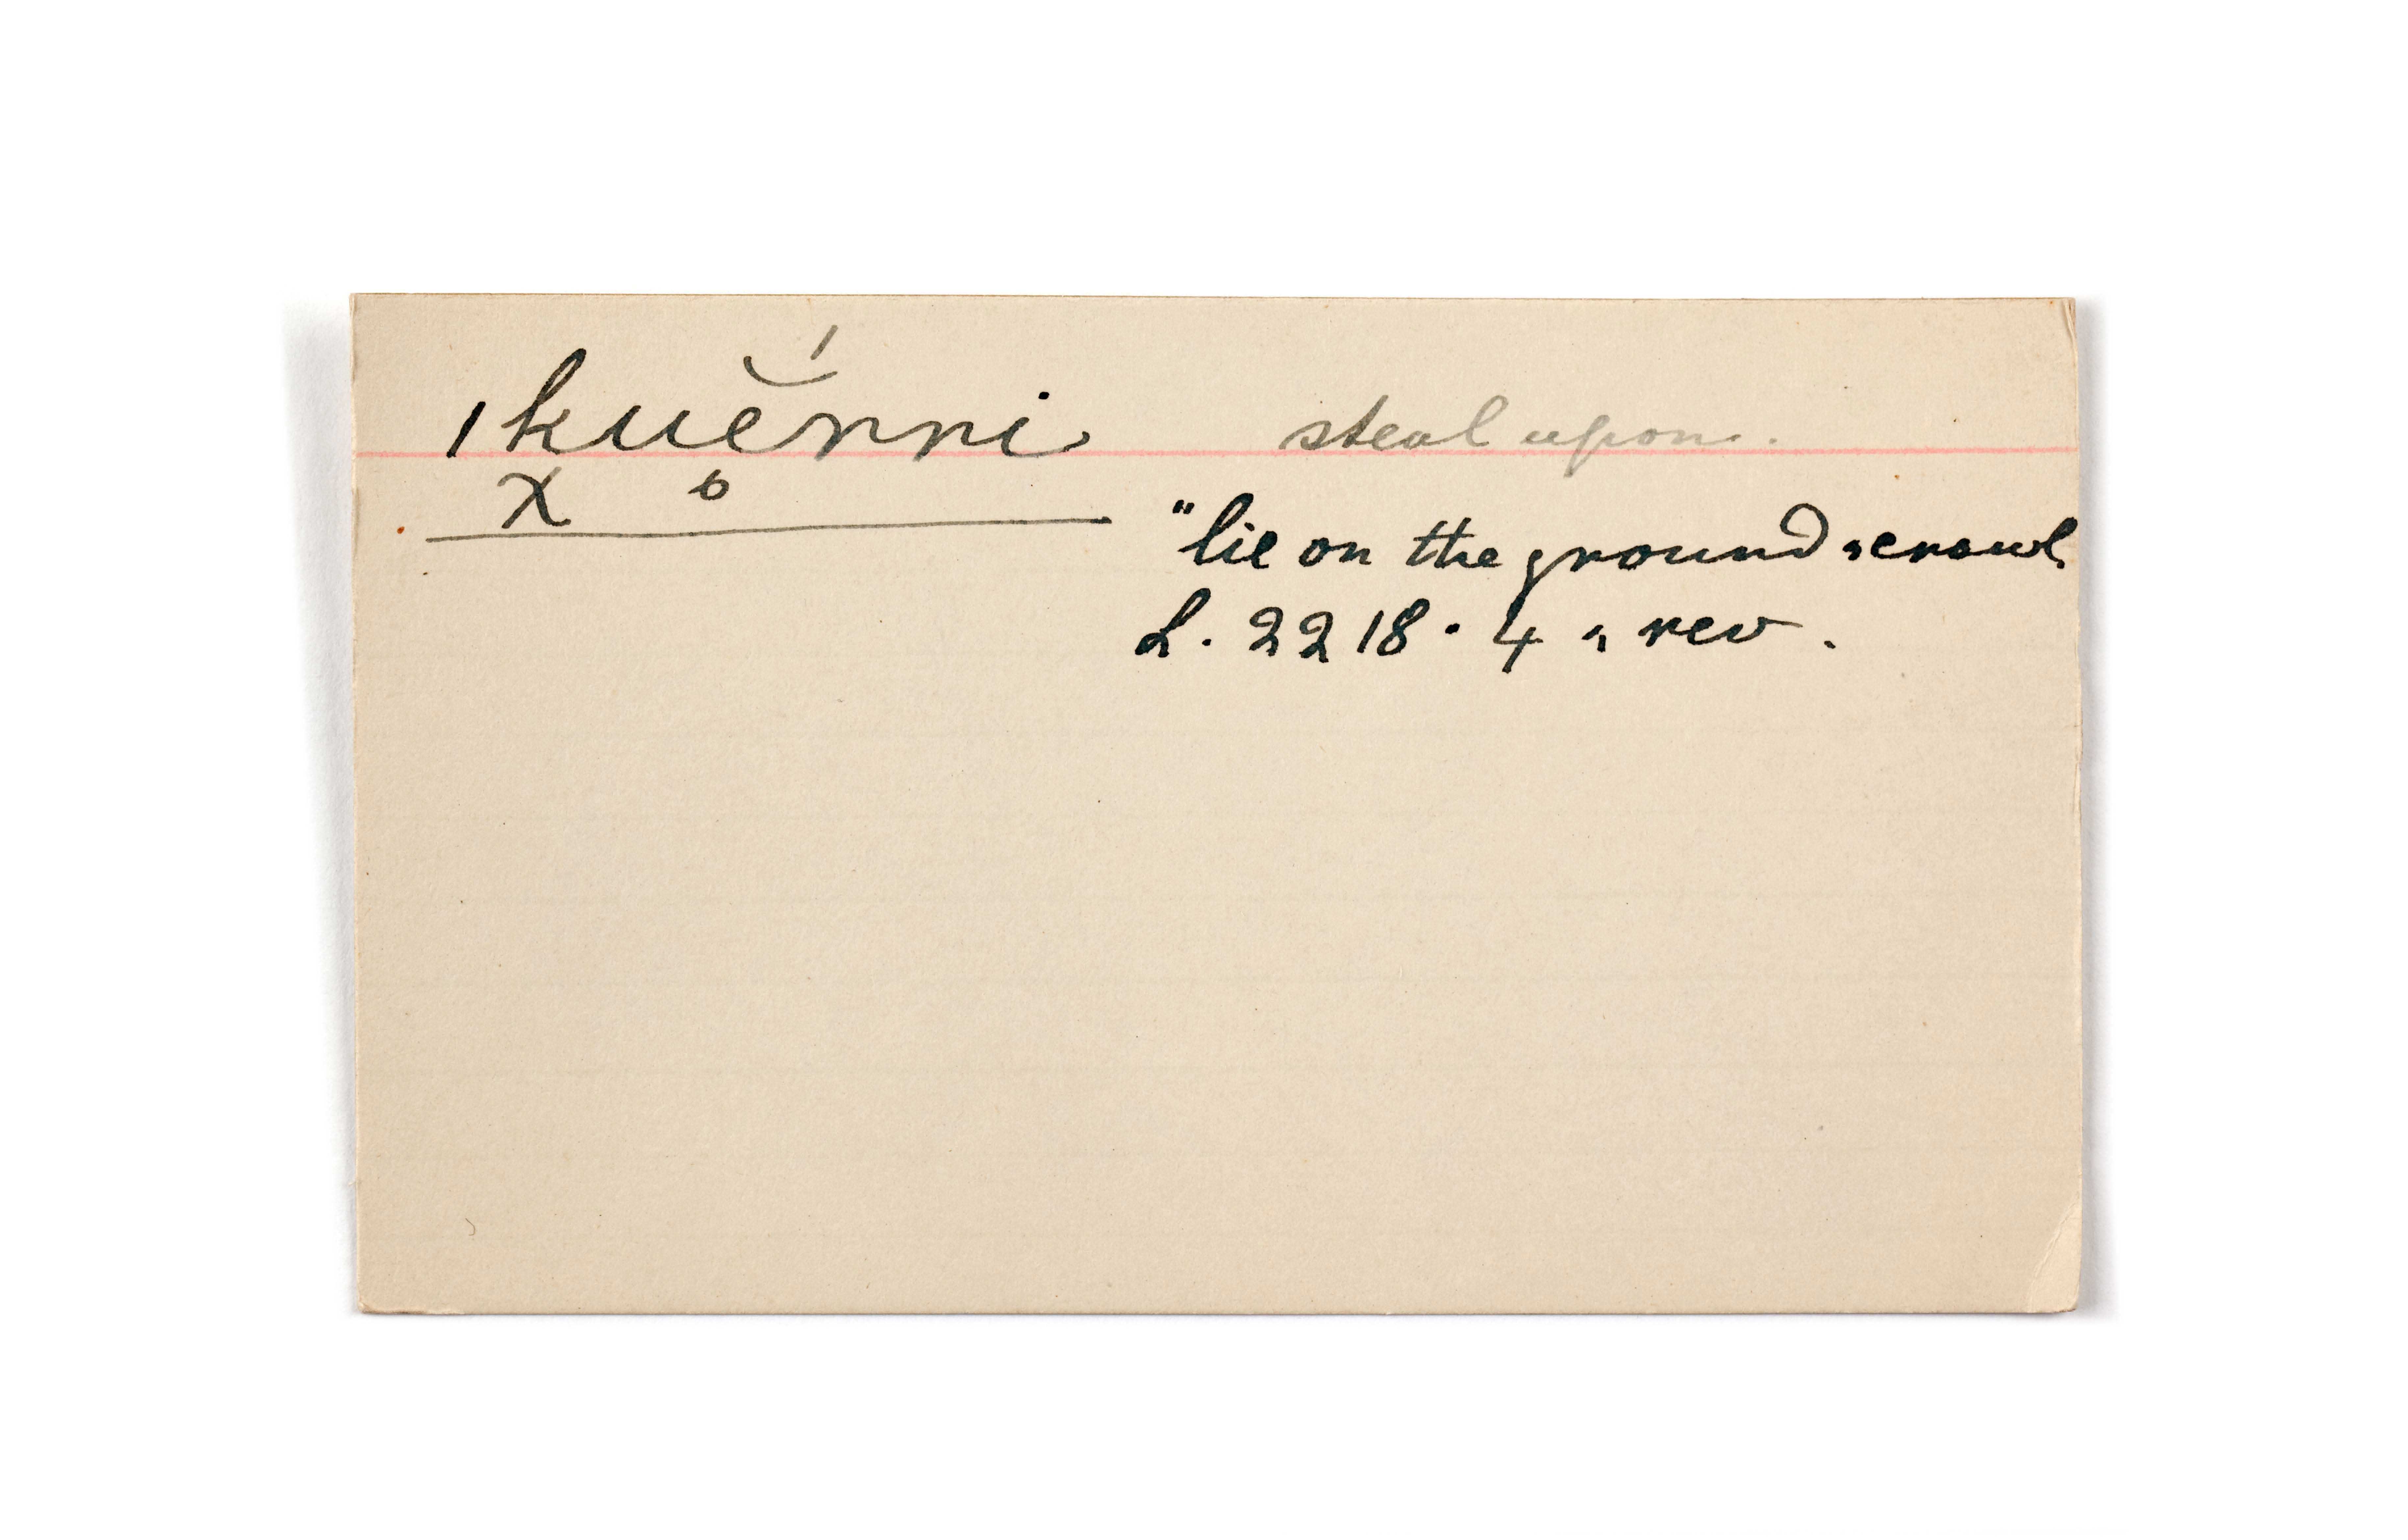 |kuĕ́nni steal upon.
x o
"lie on the ground & crawl
L. 2218. 4 & rev.